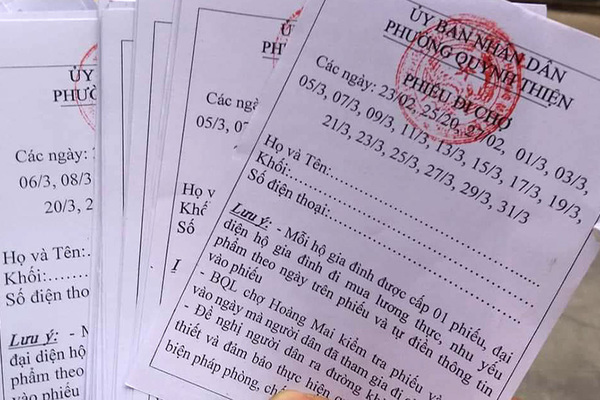 ỦY BAN NHÂN DÂN
PHƯỜNG QUỲNH THIỆN
PHIẾU ĐI CHỢ
Các ngày: 23/02, 25/20, 27/02, 01/3, 03/3,
05/3, 07/3, 09/3, 11/3, 13/3, 15/3, 17/3, 19/3,
21/3, 23/3, 25/3, 27/3, 29/3, 31/3
Họ và Tên:
Khối:
Số điện thoại:
Lưu ý: - Mỗi hộ gia đình được cấp 01 phiếu, đại
diện hộ gia đình đi mua lương thực, nhu yếu
phẩm theo ngày trên phiếu và tự điền thông tin
vào phiếu
- BQL chợ Hoàng Mai kiểm tra phiếu và
vào ngày mà người dân đã tham gia đi
- Đề nghị người dân ra đường khi
thiết và đảm bảo thực hiện
biện pháp phòng,
ỦY
PHƯỜ
Các ngày:
05/3, 07
Họ và
Khối
Số
ỦY
PHƯỜ
Các ngày:
06/3, 08/3
20/3, 2
Họ và Tên:
Khối:
Số điện thoạ
Lưu ý: - M
đại diện hộ
phẩm theo
vào phiếu